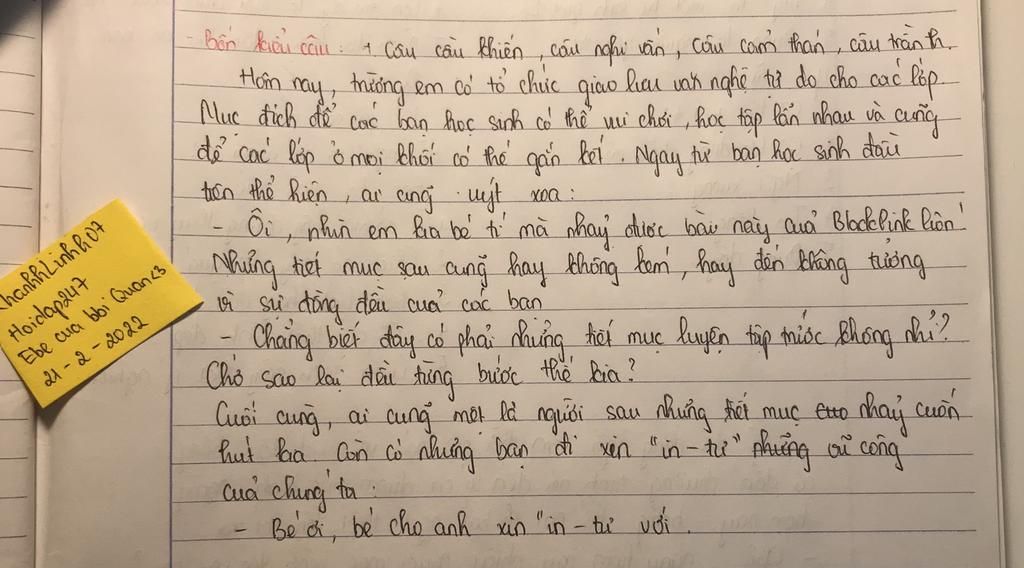 - Bốn kiểu câu: + câu cầu khiến, câu nghi vấn, câu cảm thán, câu trần th.
Hôm nay, trường em có tổ chức giao lưu văn nghệ tự do cho các lớp.
Mục đích để các bạn học sinh có thể vui chơi, học tập lẫn nhau và cũng
để các lớp ở mọi khối có thể gắn kết. Ngay từ bạn học sinh đầu
tiên thể hiện, ai cũng xuýt xoa:
- Ôi, nhìn em kia bé tí mà nhảy được bài này của BlackPink liền!
Những tiết mục sau cũng hay không kém, hay đến không tưởng
vì sự đồng đều của các bạn
- Chẳng biết đây có phải những tiết mục luyện tập trước không nhỉ?
Chớ sao lại đều từng bước thế kia?
Cuối cùng, ai cũng mệt lả người sau những tiết mục nhảy cuốn
hút kia. Còn có những bạn đi xin "in-tư" những vũ công
của chúng ta:
- Bé ơi, bé cho anh xin "in-tư" với.
khanhhLinhh07
Hoidap247
Ebe cua bôi Quancs
21-2-2022